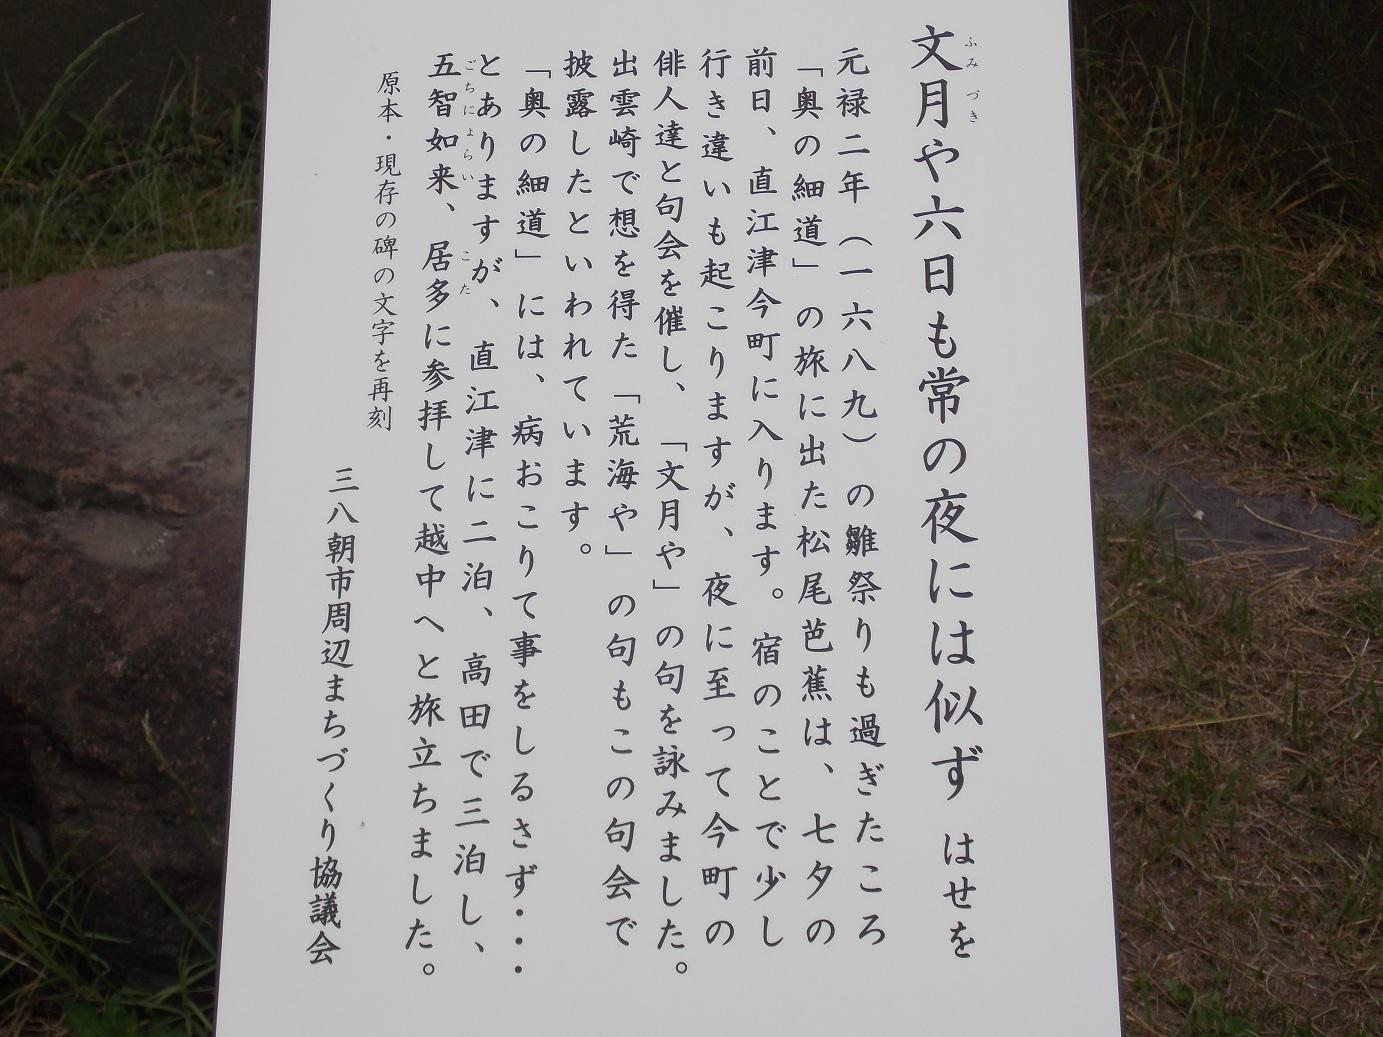 文月や六日も常の夜には似ず はせを
ふみ づき
元禄二年（一六八九）の雛祭りも過ぎたころ
「奥の細道」の旅に出た松尾芭蕉は、七夕の
前日、直江津今町に入ります。宿のことで少し
行き違いも起こりますが、夜に至って今町の
俳人達と句会を催し、「文月や」の句を詠みました。
出雲崎で想を得た「荒海や」の句もこの句会で
披露したといわれています。
「奥の細道」には、病おこりて事をしるさず・・・
とありますが、直江津に二泊、高田で三泊し、
五智如来、居多に参拝して越中へと旅立ちました。
ごちにょらい こた
原本・現存の碑の文字を再刻
三八朝市周辺まちづくり協議会